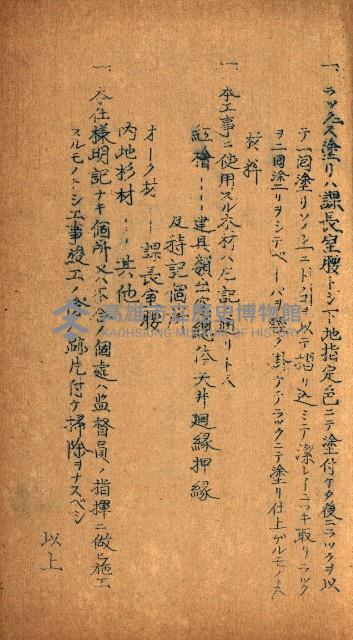 一、ラックス塗リハ課長室腰トシ下地指定色ニテ塗付ケタ後ニラックヲ以
テ一回塗リソノ上ニトノコヲ以テ摺リ込ミテ潔レイニフキ取リラック
ヲ二回塗リヲシテペーパヲ掛ケテラックニテ塗リ仕上ゲルモノトス
材料
一、本工事ニ使用スル木材ハ左記ノ通リトス
紅檜……建具額出窓天井廻縁押縁
及特記個所
オーク材……課長室腰
内地杉材……其他
一、本仕様明記ナキ個所又ハ不合個處ハ監督員ノ指揮ニ倣ヒ施工
スルモノトシ工事竣工ノ跡片付ケ掃除ヲナスベシ
以上
高雄市立歷史博物館
KAOHSIUNG MUSEUM OF HISTORY